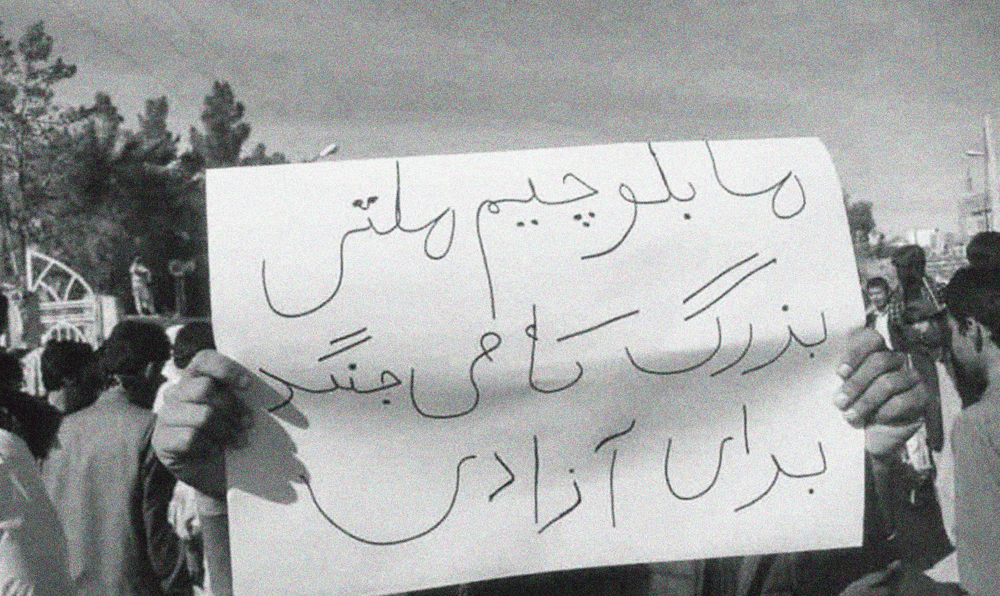 ما بلوچیم ملتی
بزرگ که می جنگد
برای آزادی